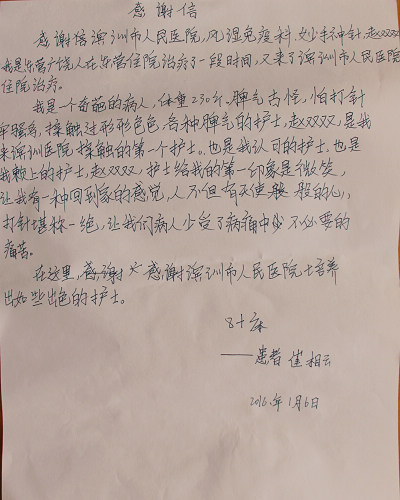 感谢信
感谢信深圳市人民医院,风湿免疫科,妙手神针,赵XXXX
我是东莞厂饶人在东莞住院治疗了一段时间,又来了深圳市人民医院
住院治疗。
我是个奇葩的病人,体重230斤,脾气古怪,怕打针
接触过形形色色,各种脾气的护士,赵XXXX,是我
来深圳医院接触的第一个护士。也是我认可的护士,也是
我赖上的护士,赵XXXX,护士给我的第一印象是微笑,
让我有一种回到家的感觉,人不但有天使般 般的心,
打针堪称一绝,让我们病人少台了病痛中少不必要的
痛苦。
在这里,感谢 感谢深圳市人民医院 培养
出如些出色的护士。
8十床
——患者 崔相云
2016年1月6日